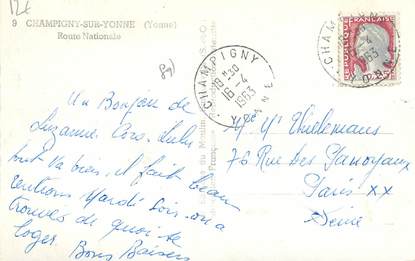 12€
9 CHAMPIGNY-SUR-YONNE (Yonne)
Route Nationale
89)
CHAMPIGNY
19 H 30
16-4
1963
YONNE
REPUBLIQUE FRANÇAISE
0,25
Un Bonjour de
Suzanne. Coro. Lulu
tout va bien, il fait beau
rentrons Mardi soir on a
trouvés de quoi se
loger Bons Baisers
76 Rue des
Paris XX
Seine